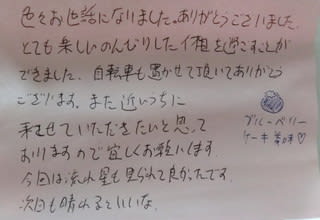 色々お世話になりました。ありがとうございました。
とても楽しいのんびりした休暇を過ごすことが
できました。自転車も置かせて頂いてありがとう
ございます。また近いうちに
来させていただきたいと思って
おりますので宜しくお願いします。
今回は流れ星も見られて良かったです。
次回も晴れるといいな。
ブルーベリー
ケーキ美味♡